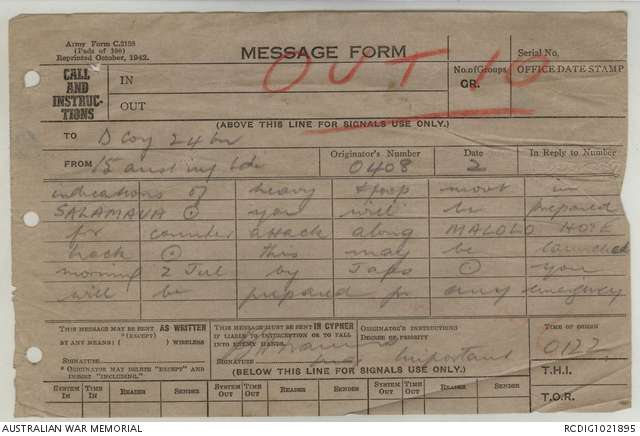 Army Form C.2128
(Pads of 100)
Reprinted October, 1942.
MESSAGE FORM
Serial No.
CALL AND INSTRUC-TIONS
IN
OUT
OUT 10
No. of Groups
GR.
OFFICE DATE STAMP
(ABOVE THIS LINE FOR SIGNALS USE ONLY.)
TO D Coy 24 Bn
FROM 15 Aust Inf Bde
Originator's Number
0408
Date
2
In Reply to Number
indications of heavy troop movt in
SALAMAUA ⊙ you will be prepared
for counter attack along MALOLO HOTE
track ⊙ this may be launched
morning 2 Jul by Japs ⊙ you
will be prepared for any emergency
THIS MESSAGE MAY BE SENT AS WRITTEN
(EXCEPT)
BY ANY MEANS ( ) WIRELESS
SIGNATURE
* ORIGINATOR MAY DELETE "EXCEPT" AND INSERT "INCLUDING."
THIS MESSAGE MUST BE SENT IN CYPHER
IF LIABLE TO INTERCEPTION OR TO FALL INTO ENEMY HANDS.
SIGNATURE
ORIGINATOR'S INSTRUCTIONS
DEGREE OF PRIORITY
Important
TIME OF ORIGIN
0122
(BELOW THIS LINE FOR SIGNALS USE ONLY.)
T.H.I.
T.O.R.
SYSTEM IN
TIME IN
READER
SENDER
SYSTEM OUT
TIME OUT
READER
SENDER
SYSTEM OUT
TIME OUT
READER
SENDER
AUSTRALIAN WAR MEMORIAL
RCDIG1021895